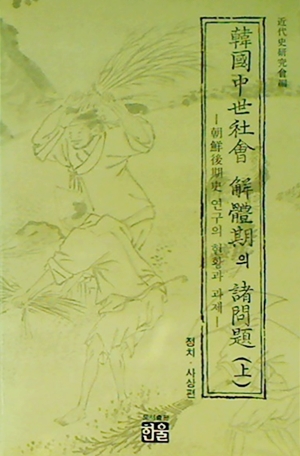 近代史硏究會編
韓國中世社會 解體期의 諸問題(上)
―朝鮮後期史 연구의 현황과 과제―
정치 사상편
도서출판
한울